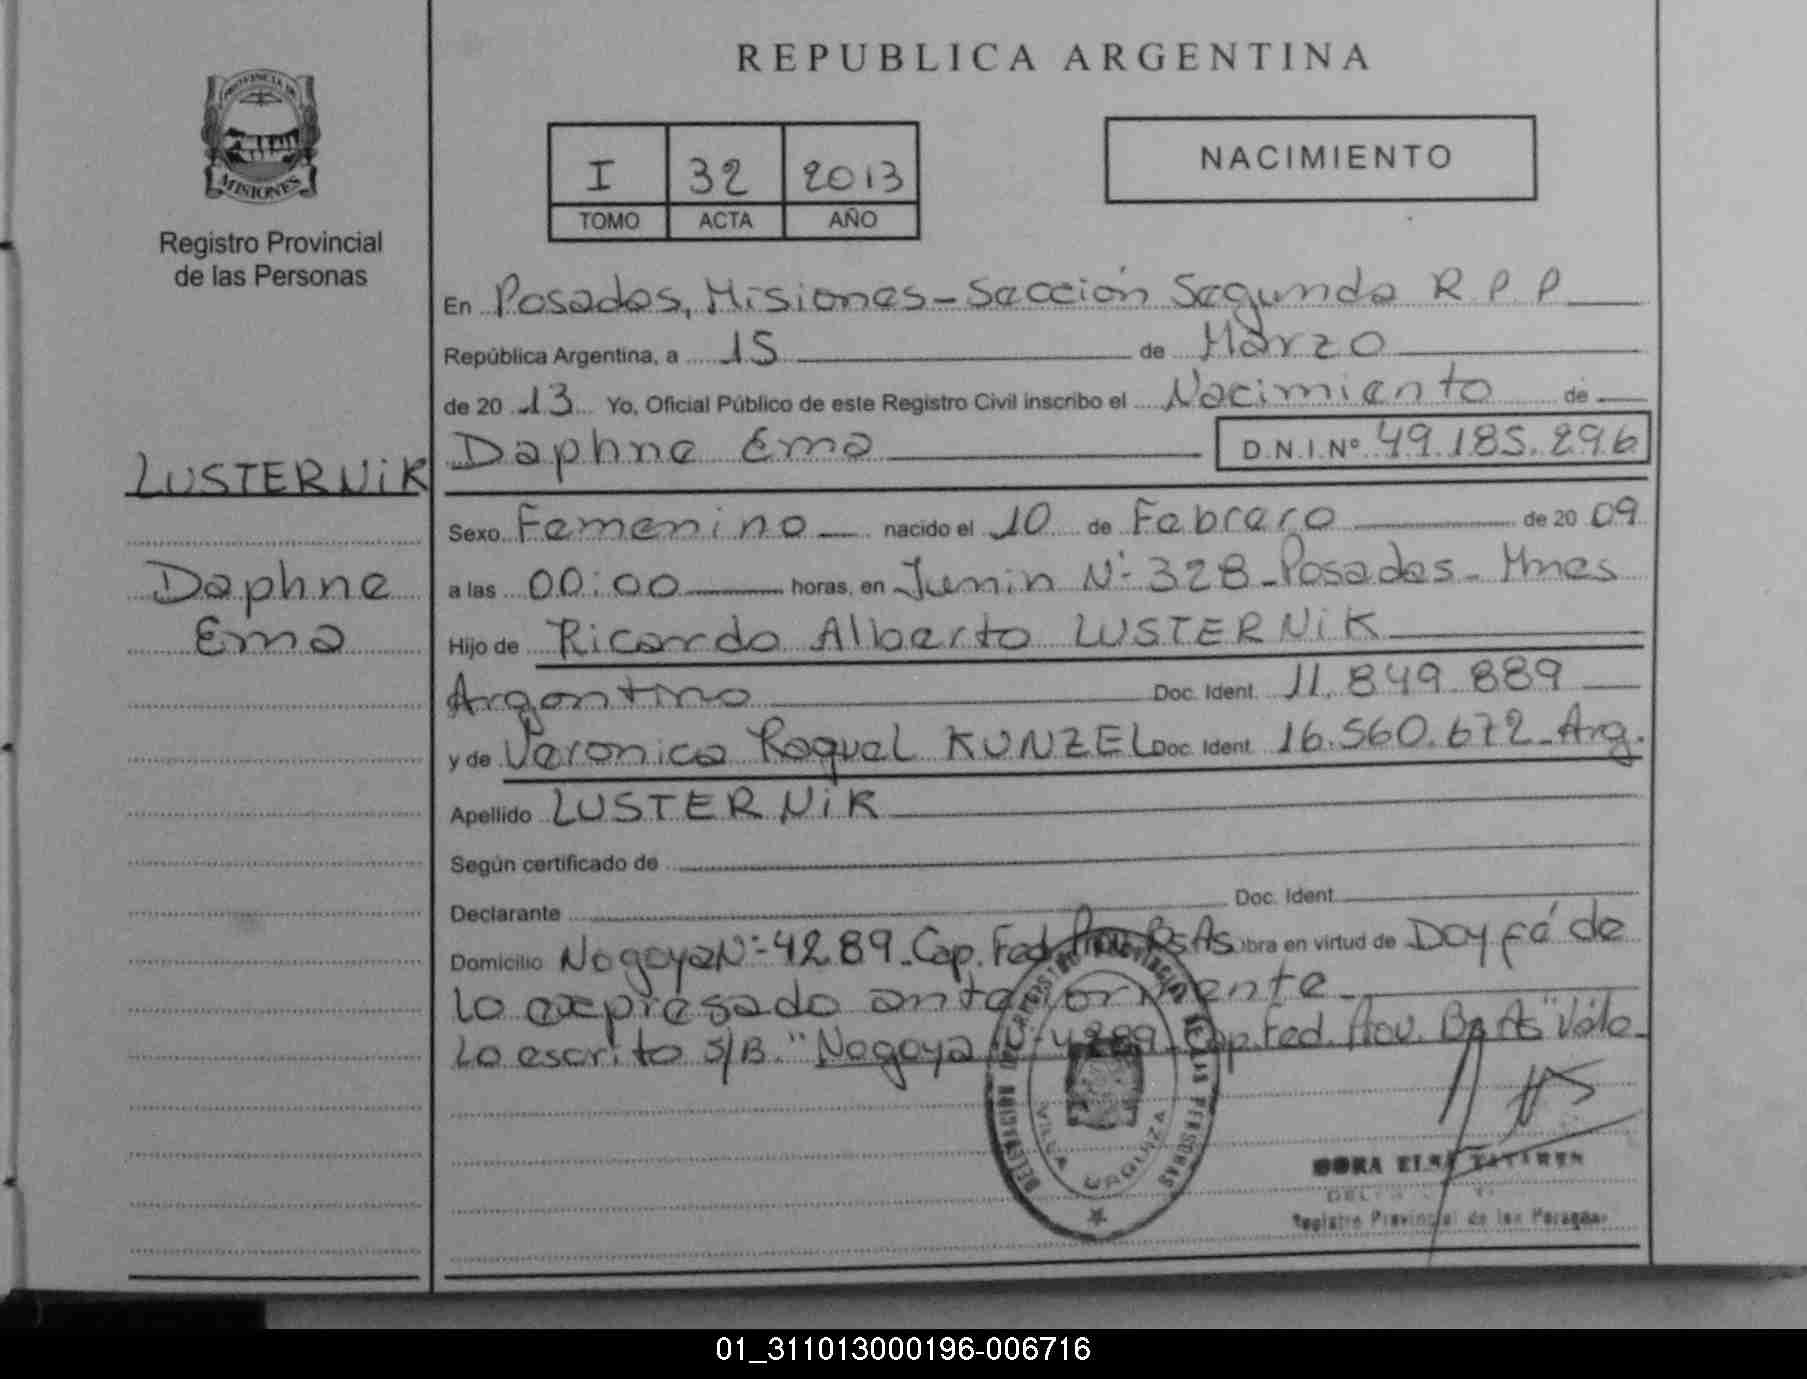 REPUBLICA ARGENTINA
PROVINCIA DE
MISIONES
Registro Provincial
de las Personas
I 32 2013
TOMO ACTA AÑO
NACIMIENTO
En Posadas, Misiones - Sección Segunda R P P
República Argentina, a 15 de Marzo
de 20 13 Yo, Oficial Público de este Registro Civil inscribo el Nacimiento de
Daphne Ema D.N.I.Nº 49.185.296
LUSTERNiK
Daphne
Ema
Sexo Femenino nacido el 10 de Febrero de 20 09
a las 00:00 horas, en Junin Nº 328 - Posadas - Mnes
Hijo de Ricardo Alberto LUSTERNiK
Argentino Doc. Ident. 11.849.889
y de Veronica Raquel KUNZEL Doc. Ident. 16.560.672 - Arg.
Apellido LUSTERNiK
Según certificado de
Declarante Doc. Ident.
Domicilio Nogoya Nº 4289 - Cap. Fed. Prov. Bs As obra en virtud de Doy fé de
lo expresado anteriormente
Lo escrito S/B "Nogoya Nº 4289 - Cap. Fed. Prov. Bs As" Vale -
VILLA URQUIZA
DORA ELSA
Registro Provincial de las Personas
01_311013000196-006716